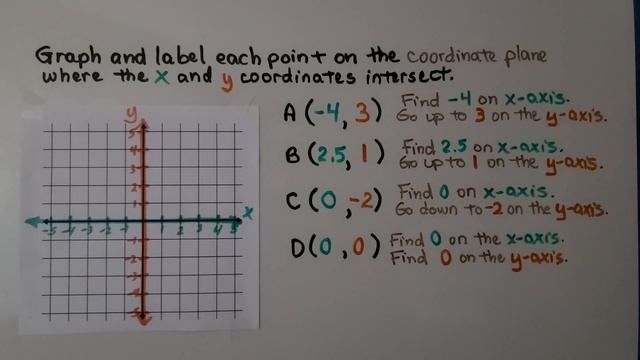 Graph and label each point on the coordinate plane
where the x and y coordinates intersect.
A (-4, 3) Find -4 on x-axis.
Go up to 3 on the y-axis.
B (2.5, 1) Find 2.5 on x-axis.
Go up to 1 on the y-axis.
C (0, -2) Find 0 on x-axis.
Go down to -2 on the y-axis.
D (0, 0) Find 0 on the x-axis.
Find 0 on the y-axis.
y
5
4
3
2
1
x
-5 -4 -3 -2 -1 1 2 3 4 5
-1
-2
-3
-4
-5